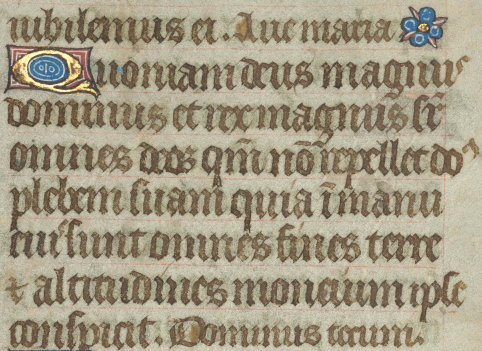 iubilemus ei. Aue maria
Quoniam deus magnus
dominus et rex magnus sr̄
omnes deos qm̄ nō repellet do
plebem suam quia ī manu
eius sunt omnes fines terre
⁊ altitudines moncium ipse
conspicit. Dominus tecum.